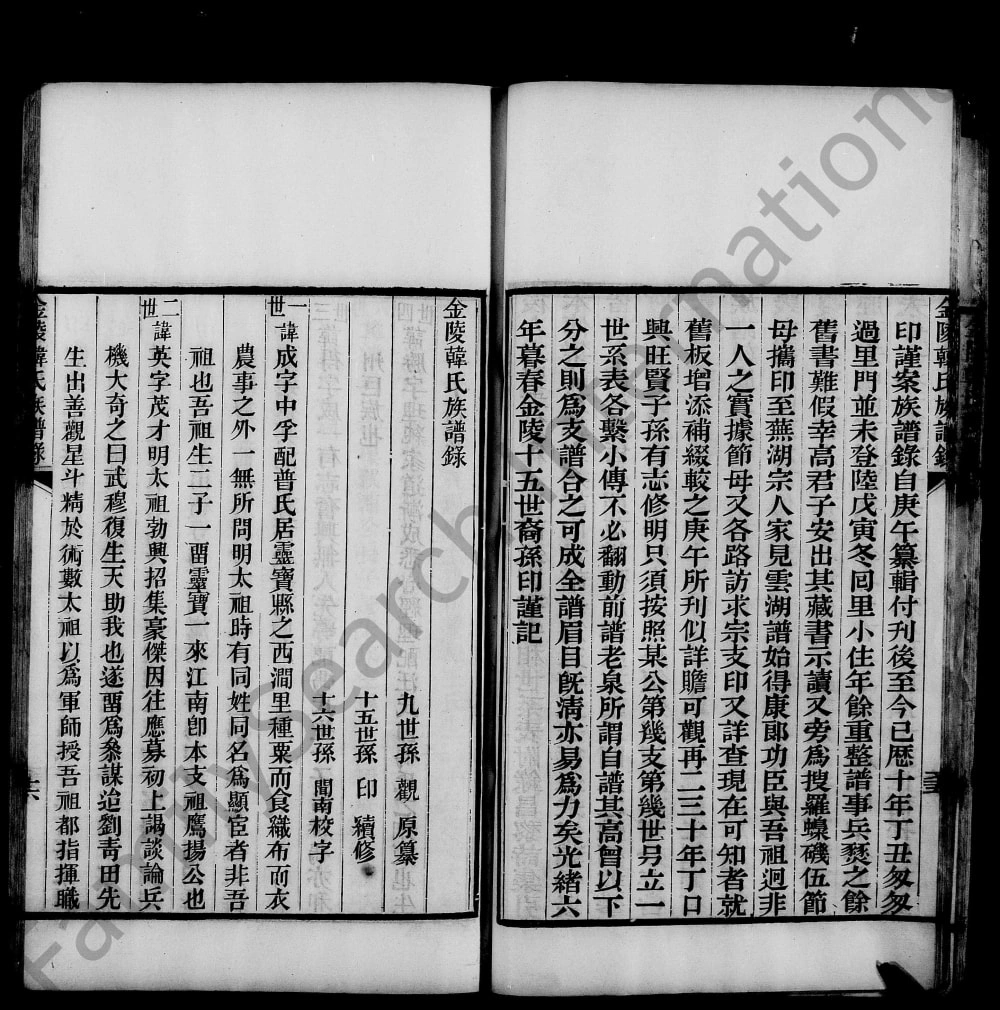 金陵韓氏族譜錄
印謹案族譜錄自庚午纂輯付刊後至今已歷十年丁丑匆匆
過里門並未登陸戊寅冬囘里小住年餘重整譜事兵燹之餘
舊書難假幸高君子安出其藏書示讀又旁爲搜羅蟂磯伍節
母攜印至蕪湖宗人家見雲湖譜始得康郞功臣與吾祖迥非
一人之實據節母又各路訪求宗支印又詳查現在可知者就
舊板增添補綴較之庚午所刊似詳贍可觀再二三十年丁口
興旺賢子孫有志修明只須按照某公第幾支第幾世另立一
世系表各繫小傳不必翻動前譜老泉所謂自譜其高曾以下
分之則爲支譜合之可成全譜眉目旣淸亦易爲力矣光緒六
年暮春金陵十五世裔孫印謹記
金陵韓氏族譜錄
九世孫觀原纂
十五世孫印續修
十六世孫闓南校字
一世諱成字中孚配普氏居靈寶縣之西澗里種粟而食織布而衣
農事之外一無所問明太祖時有同姓同名爲顯宦者非吾
祖也吾祖生二子一畱靈寶一來江南卽本支祖鷹揚公也
二世諱英字茂才明太祖勃興招集豪傑因往應募初上謁談論兵
機大奇之曰武穆復生天助我也遂畱爲叅謀迨劉靑田先
生出善觀星斗精於術數太祖以爲軍師授吾祖都指揮職
金陵韓氏族譜錄
FamilySearch International